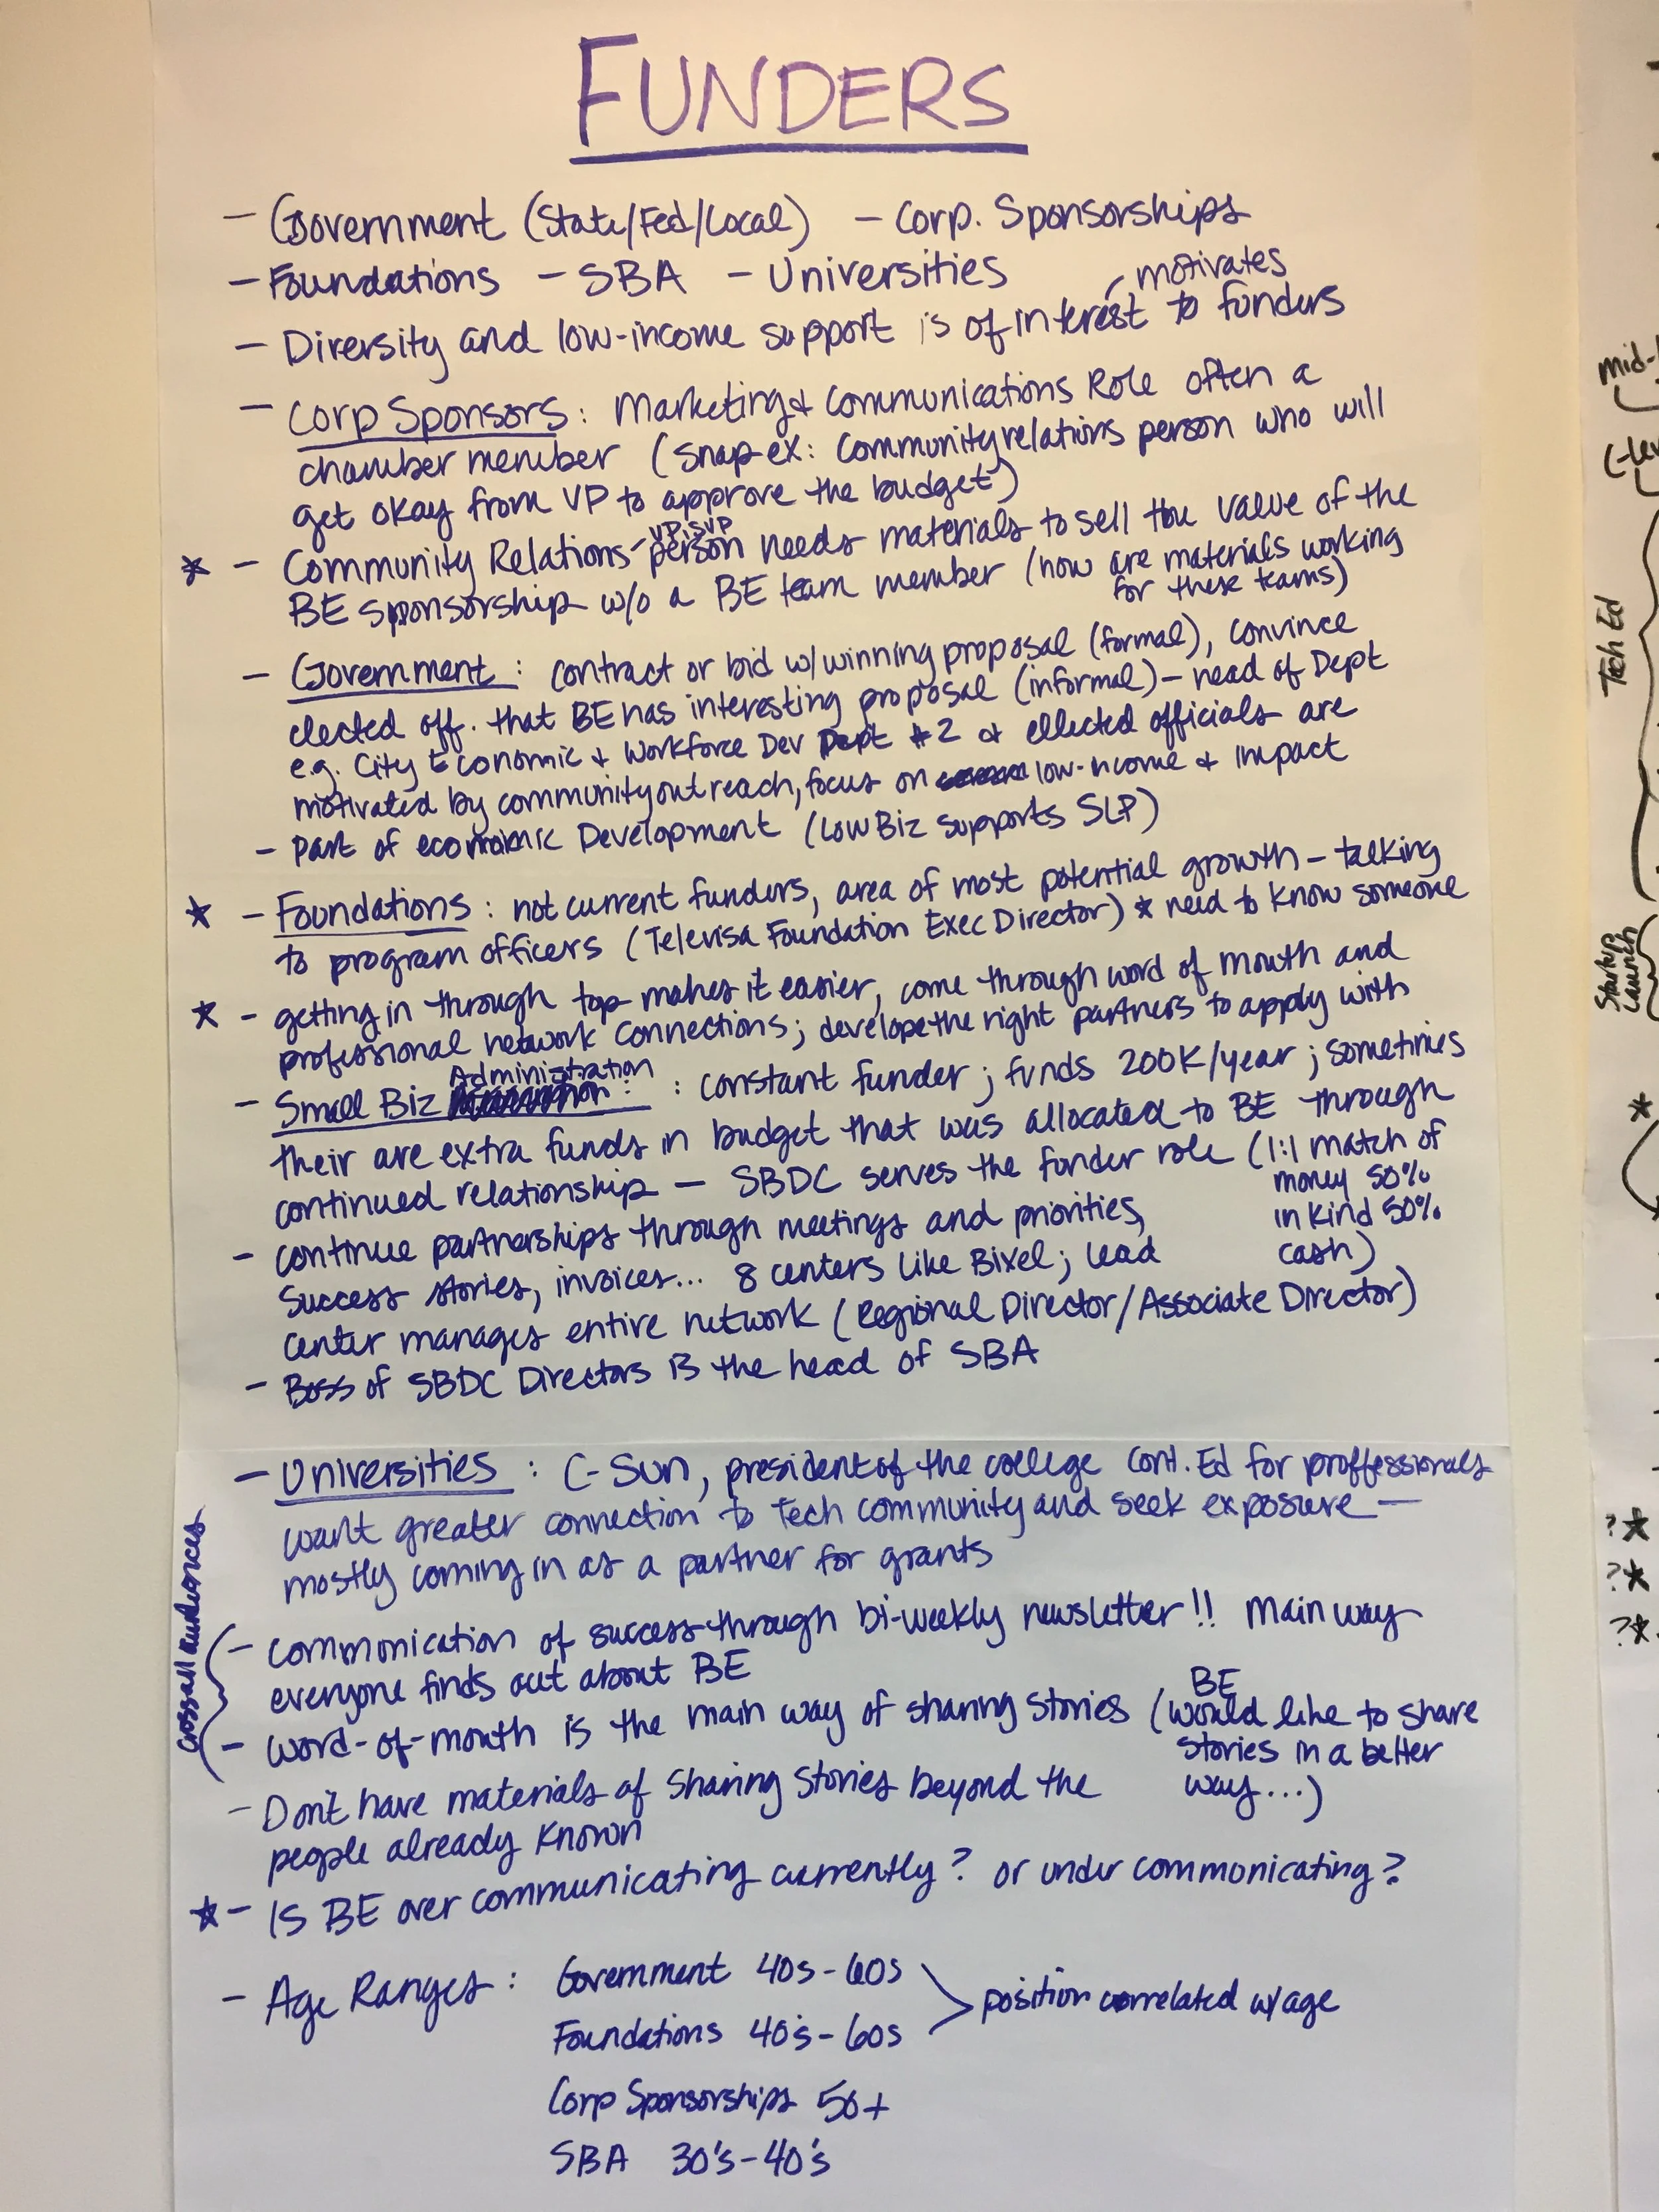 FUNDERS
- Government (State/Fed/Local) - Corp. Sponsorships
- Foundations - SBA - Universities
motivates
- Diversity and low-income support is of interest to funders
- Corp Sponsors: Marketing & Communications Role often a
chamber member (Snap ex: Community relations person who will
get okay from VP to approve the budget)
VP, SVP
* - Community Relations - person needs materials to sell the value of the
BE sponsorship w/o a BE team member (how are materials working
for these teams)
- Government: contract or bid w/ winning proposal (formal), convince
elected off. that BE has interesting proposal (informal) - head of Dept
e.g. City Economic & Workforce Dev Dept #2 & ellected officials are
motivated by community outreach, focus on low-income & impact
- Part of economic Development (LowBiz supports SLP)
* - Foundations: not current funders, area of most potential growth - talking
to program officers (Televisa Foundation Exec Director) * need to know someone
* - getting in through top makes it easier, come through word of mouth and
professional network connections; develope the right partners to apply with
Administration
- Small Biz : constant funder; funds 200K/year; sometimes
their are extra funds in budget that was allocated to BE through
continued relationship - SBDC serves the funder role (1:1 match of
money 50%
in kind 50%
cash)
- continue partnerships through meetings and priorities,
Success stories, invoices... 8 centers like Bixel; lead
center manages entire network (Regional Director/Associate Director)
- Boss of SBDC Directors is the head of SBA
- Universities: C-Sun, president of the college Cont. Ed for proffessionals
want greater connection to Tech community and seek exposure -
mostly coming in as a partner for grants
cross all audiences
- communication of success through bi-weekly newsletter!! Main way
everyone finds out about BE
BE
- word-of-mouth is the main way of sharing stories (would like to share
stories in a better
way...)
- Don't have materials of sharing stories beyond the
people already known
* - Is BE over communicating currently? or under communicating?
- Age Ranges: Government 40s-60s
Foundations 40's-60s
position correlated w/age
Corp Sponsorships 50+
SBA 30's-40's
mid-
C-lev
Tech Ed
Startup
Launch
*
?*
?*
?*